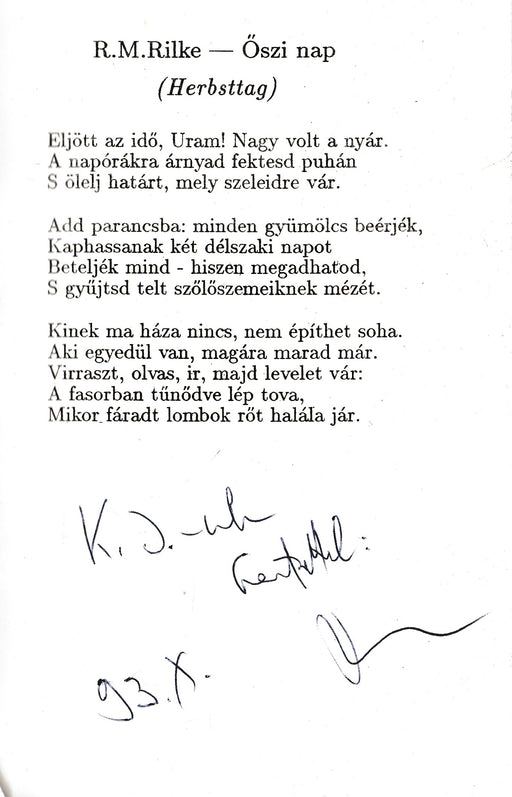 R.M.Rilke — Őszi nap
(Herbsttag)
Eljött az idő, Uram! Nagy volt a nyár.
A napórákra árnyad fektesd puhán
S ölelj határt, mely szeleidre vár.
Add parancsba: minden gyümölcs beérjék,
Kaphassanak két délszaki napot
Beteljék mind - hiszen megadhatod,
S gyűjtsd telt szőlőszemeiknek mézét.
Kinek ma háza nincs, nem építhet soha.
Aki egyedül van, magára marad már.
Virraszt, olvas, ir, majd levelet vár:
A fasorban tűnődve lép tova,
Mikor fáradt lombok rőt halála jár.
K. J.-nak
93.X.